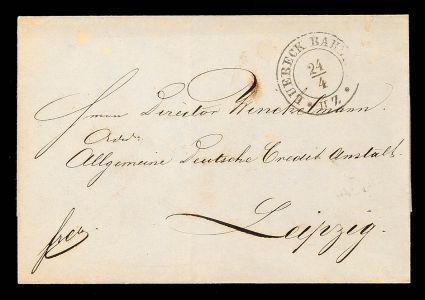 LUEBECK BAH
24
4
* II Z. *
Herrn Director Winckelmann.
Allgemeine Deutsche Credit Anstalt.
Leipzig.
frei